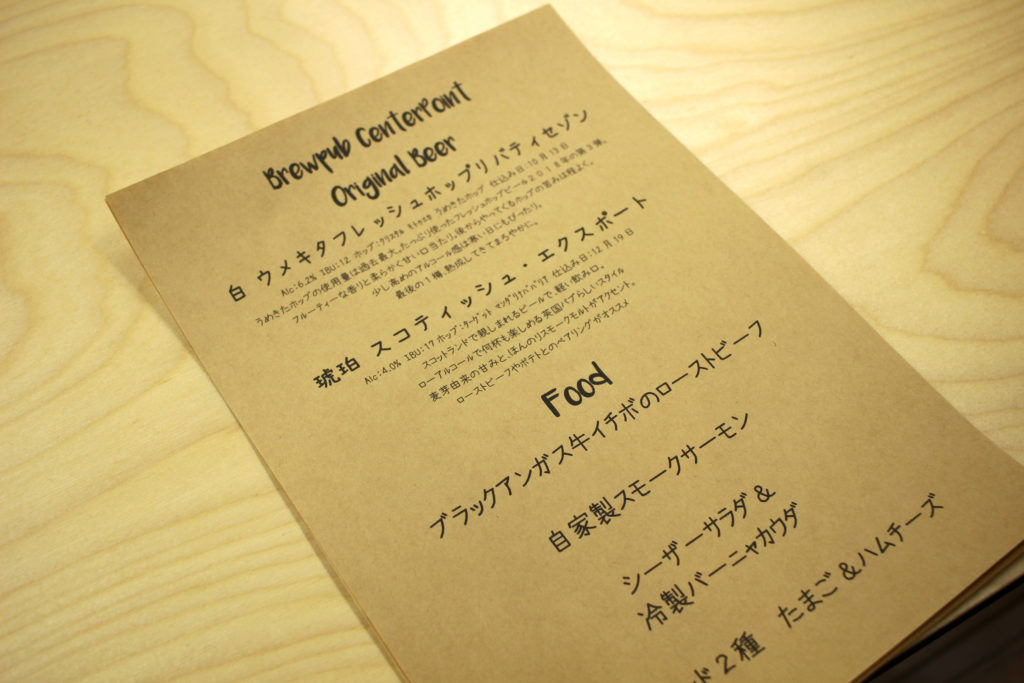 Brewpub CenterPoint
Original Beer
白 ウメキタフレッシュホップリバティセゾン
Alc:6.2% IBU:12 ホップ:クリスタル うめきたホップ 仕込み日:10月13日
うめきたホップの使用量は過去最大。たっぷり使ったフレッシュホップビール2018年の第3弾。
フルーティーな香りと柔らかく甘い口当たり。後からやってくるホップの苦みは程よく。
少し高めのアルコール感は寒い日にもぴったり。
最後の1樽、熟成してきてまろやかに。
琥珀 スコティッシュ・エクスポート
Alc:4.0% IBU:17 ホップ:ターゲット マンダリナババリア 仕込み日:12月19日
スコットランドで親しまれるビールで、軽い飲み口。
ローアルコールで何杯も楽しめる英国パブらしいスタイル
麦芽由来の甘みと、ほんのりスモークモルトがアクセント。
ローストビーフやポテトとのペアリングがオススメ
Food
ブラックアンガス牛イチボのローストビーフ
自家製スモークサーモン
シーザーサラダ &
冷製バーニャカウダ
ド2種 たまご&ハムチーズ